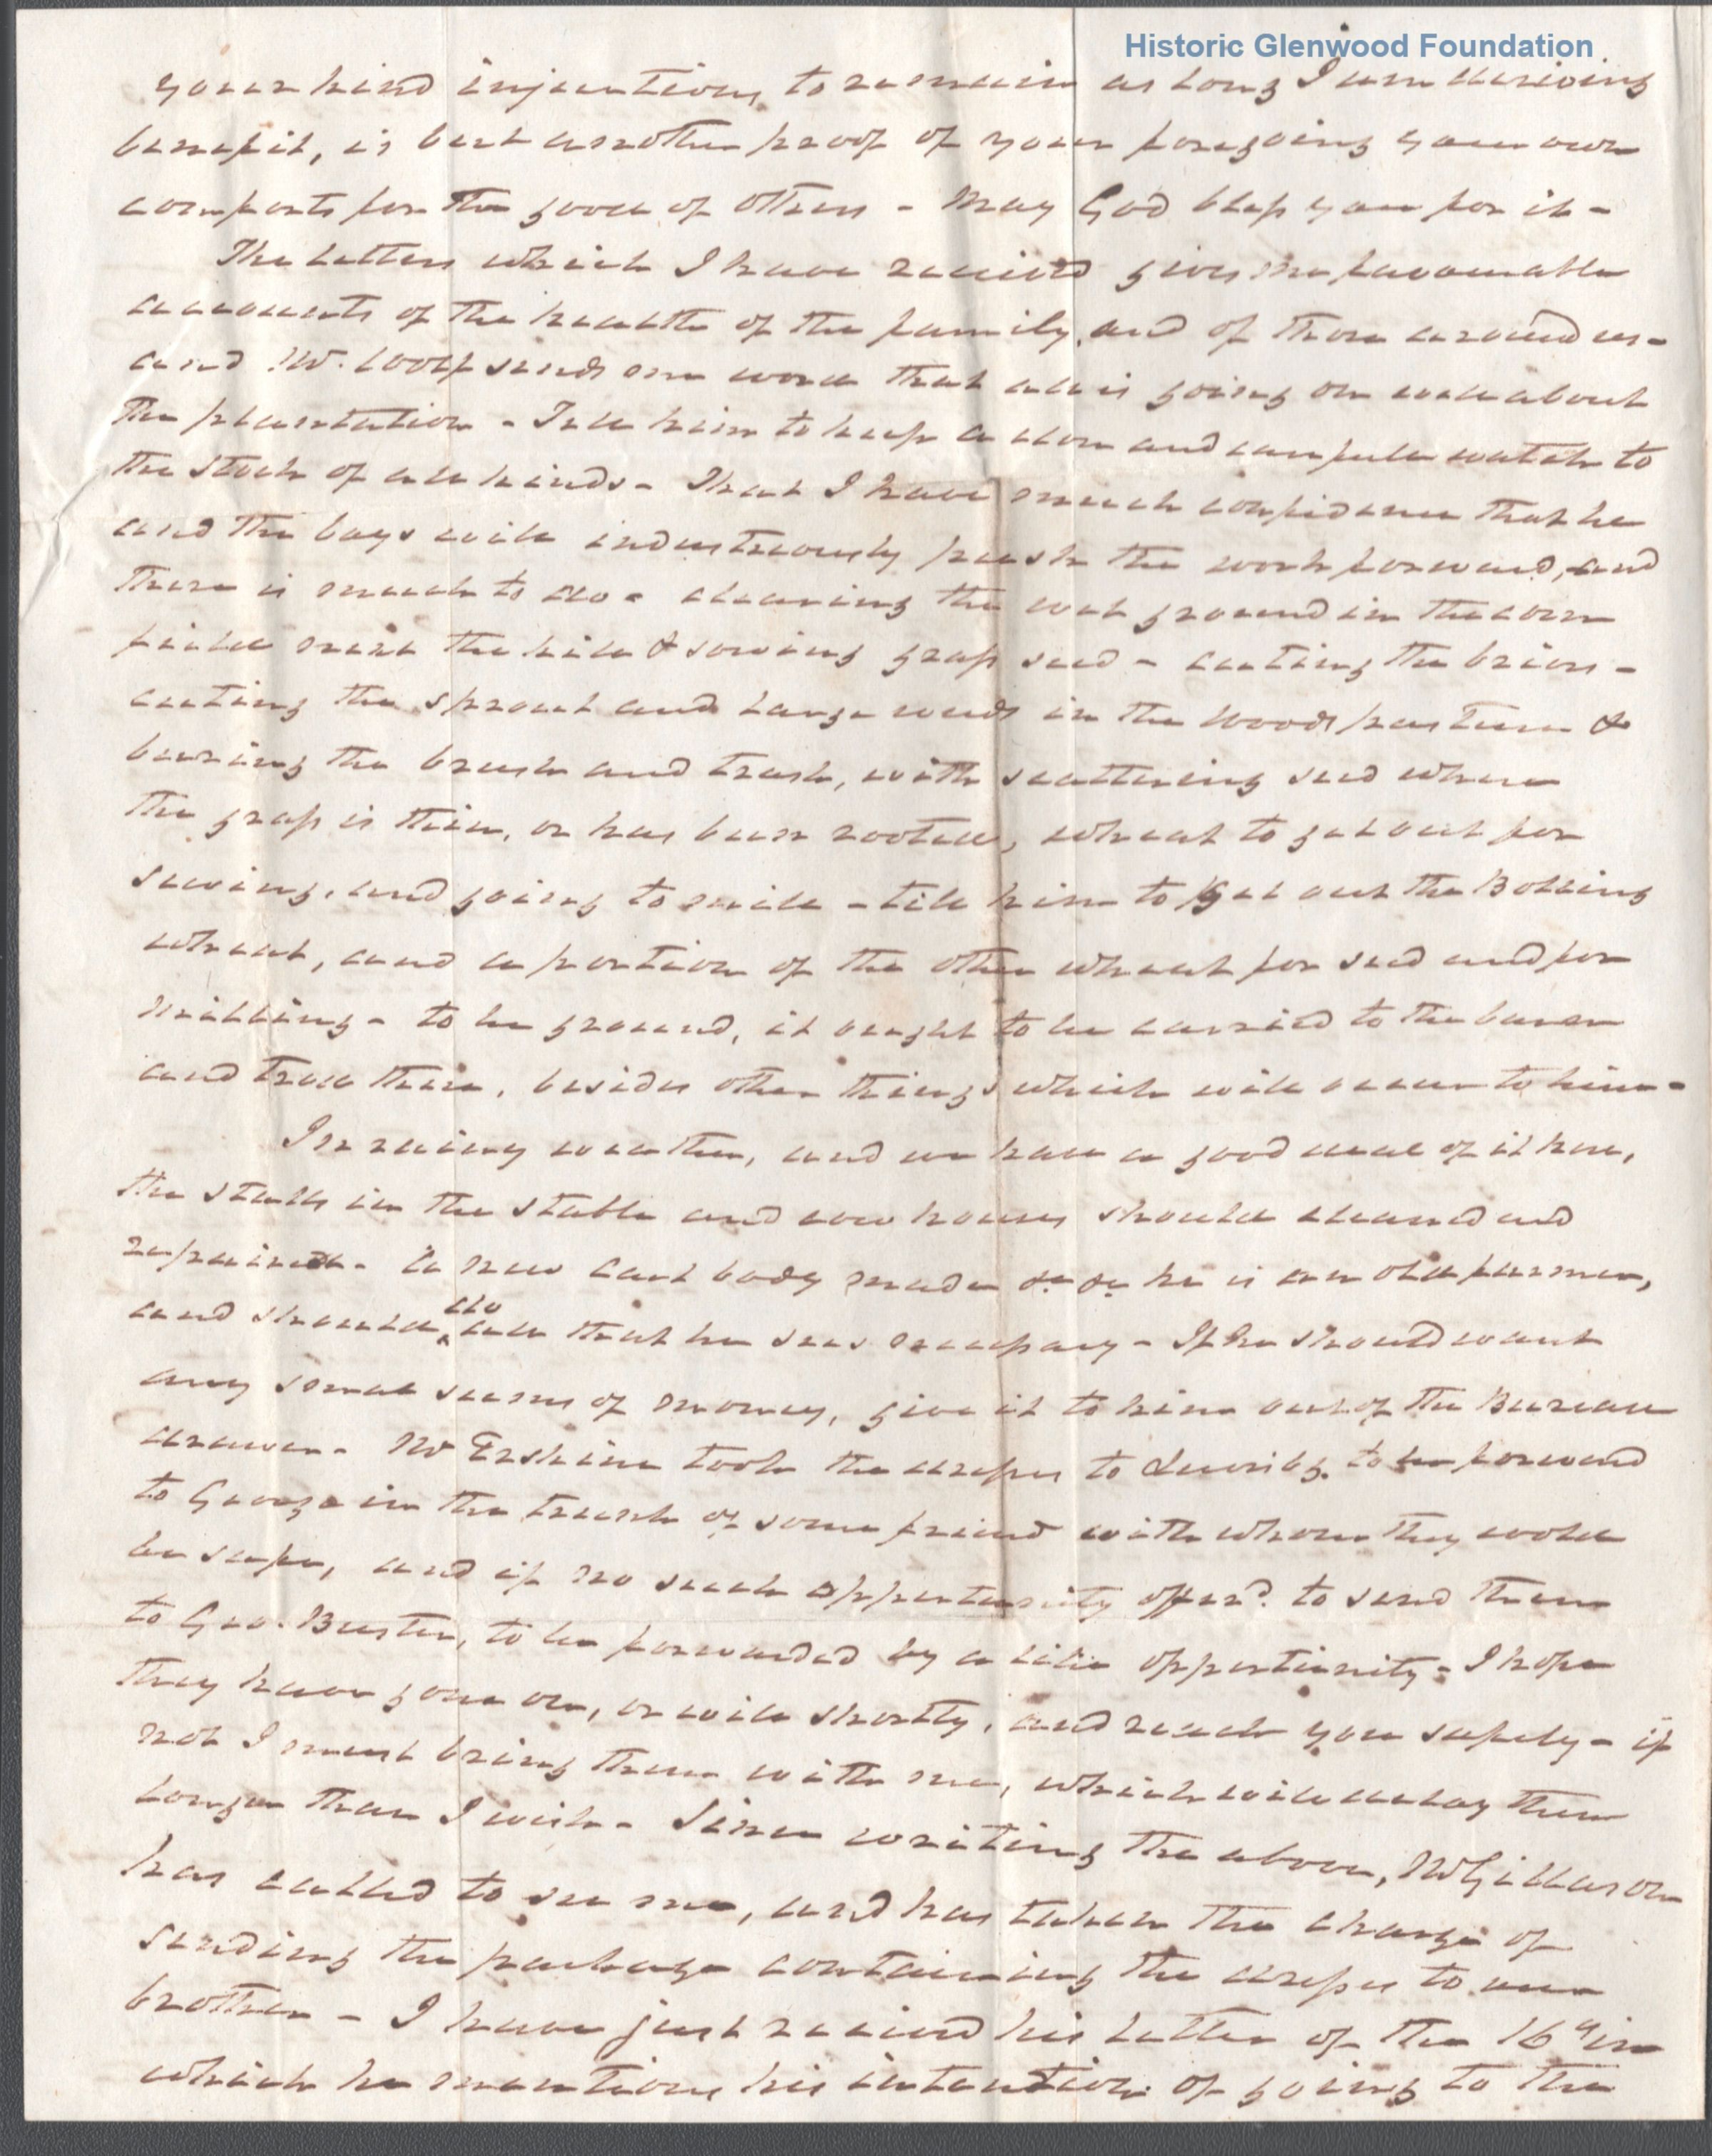 Historic Glenwood Foundation
your kind injunctions, to remain as long I am deriving
benefit, is but another proof of your foregoing your own
comforts for the good of others - May God bless you for it -
The letters which I have received gives me favourable
accounts of the health of the family, and of those around us -
and Mr. sends me word that all is going on well about
the plantation - Tell him to keep a close and careful watch to
the stock of all kinds - That I have much confidence that he
and the boys will industriously push the work forward, and
there is much to do - cleaning the wet ground in the corn
field next the hill & sowing grass seed - cutting the briers -
cutting the sprout and large weeds in the woods pasture &
burning the brush and trash, with scattering seed where
the grass is thin, or has been rooted, wheat to get out for
sewing, and going to mill - tell him to get out the Bolling
wheat, and a portion of the other wheat for seed and for
milling - to be ground, it ought to be carried to the barn
and trod there, besides other things which will occur to him -
In rainy weather, and we have a good deal of it here,
the stalls in the stable and cow houses should cleaned and
repaired - a new cart body made &c &c he is an old farmer,
and should do all that he sees necessary - If he should want
any small sums of money, give it to him out of the Bureau
drawer - Mr Erskine took the dresses to Lewisbg. to be forward
to George in the trunk of some friend with whom they would
be safe, and if no such oppertunity offerd. to send them
to Geo. Buster, to be forwarded by a like oppertunity - I hope
they have gone on, or will shortly, and reach you safely - if
not I must bring them with me, which will delay them
longer than I wish - Since writing the above, Mr Gillason
has called to see me, and has taken the charge of
sending the package containing the dresses to our
brother - I have just received his letter of the 16th in
which he mentions his intention of going to the